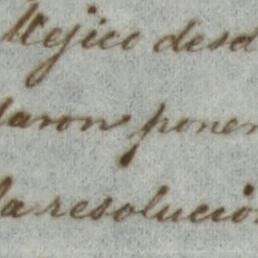 Mejico desd
daron ponen
la resolución